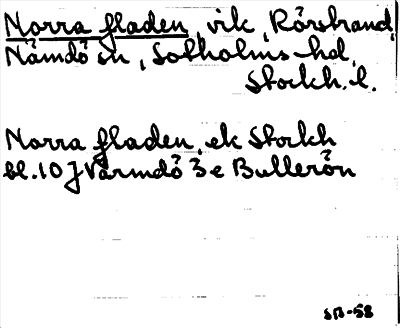 Norra fladen, vik, Rörstrand,
Nämdö sn, Sotholms hd,
Stockh. l.
Norra fladen, ek Stockh
bl. 10 J Värmdö 3 e Bullerön
SB-58